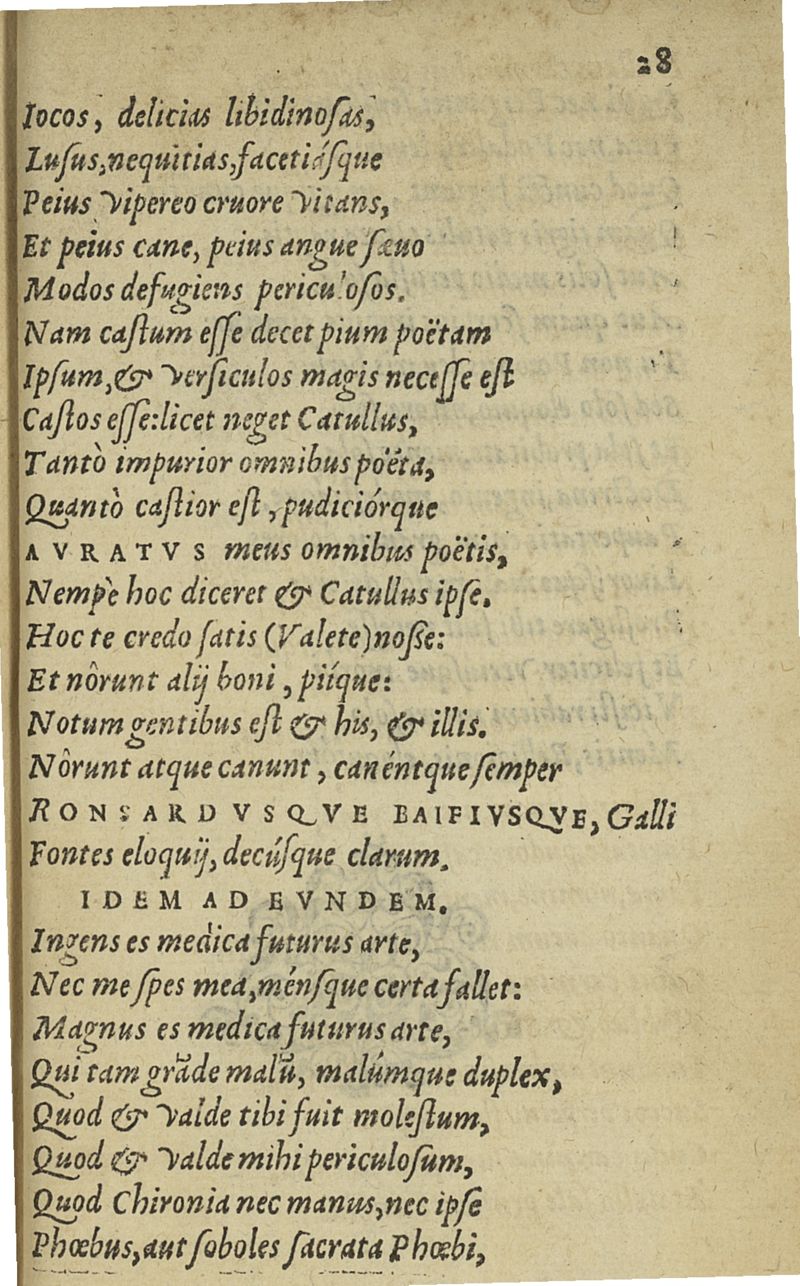 28
Iocos, delicias libidinosas,
Lusus, nequitias, facetiásque
Peius vipereo cruore vitans,
Et peius cane, peius angue sæuo
Modos defugiens periculosos.
Nam castum esse decet pium poëtam
Ipsum, & versiculos magis necesse est
Castos esse: licet neget Catullus,
Tantò impurior omnibus poëta,
Quantò castior est, pudiciórque
AVRATVS meus omnibus poëtis,
Nempè hoc diceret & Catullus ipse.
Hoc te credo satis (Valete) nosse:
Et nôrunt alij boni, piíque:
Notum gentibus est & his, & illis.
Nôrunt atque canunt, canéntque semper
RONSARDVSQVE BAIFIVSQVE, Galli
Fontes eloquij, decúsque clarum.
IDEM AD EVNDEM.
Ingens es medica futurus arte,
Nec me spes mea, ménsque certa fallet:
Magnus es medica futurus arte,
Qui tam grãde malũ, malúmque duplex,
Quod & valde tibi fuit molestum,
Quod & valde mihi periculosum,
Quod Chironia nec manus, nec ipse
Phœbus, aut soboles sacrata Phœbi,